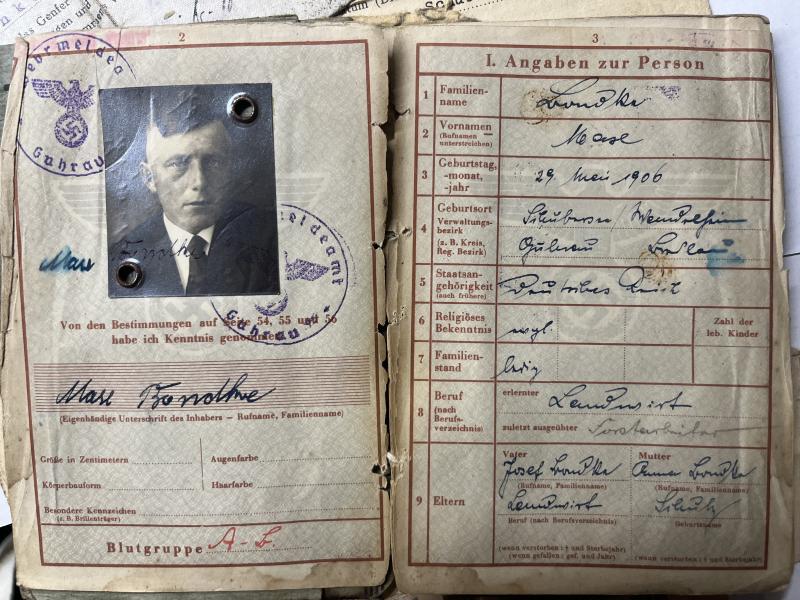 2
Wehrmeldea
Guhrau
Meldeamt
Guhrau
Max
Von den Bestimmungen auf Seite 54, 55 und 56
habe ich Kenntnis genommen.
Max Bondke
(Eigenhändige Unterschrift des Inhabers — Rufname, Familienname)
Größe in Zentimetern
Augenfarbe
Körperbauform
Haarfarbe
Besondere Kennzeichen
(z. B. Brillenträger)
Blutgruppe A-B.
3
I. Angaben zur Person
1 Familien-
name
Bondke
2 Vornamen
(Rufnamen
unterstreichen)
Max
3 Geburtstag,
-monat,
-jahr
29. Mai 1906
4 Geburtsort
Verwaltungs-
bezirk
(z. B. Kreis,
Reg. Bezirk)
Guhrau Breslau
5 Staatsan-
gehörigkeit
(auch frühere)
Deutsches Reich
6 Religiöses
Bekenntnis
evgl.
Zahl der
leb. Kinder
7 Familien-
stand
ledig
8 Beruf
(nach
Berufs-
verzeichnis)
erlernter
Landwirt
zuletzt ausgeübter
Forstarbeiter
9 Eltern
Vater
Josef Bondke
(Rufname, Familienname)
Landwirt
Beruf (nach Berufsverzeichnis)
Mutter
Anna Bondke
(Rufname, Familienname)
Geburtsname
(wenn verstorben: † und Sterbejahr)
(wenn gefallen: gef. und Jahr)
(wenn verstorben: † und Sterbejahr)